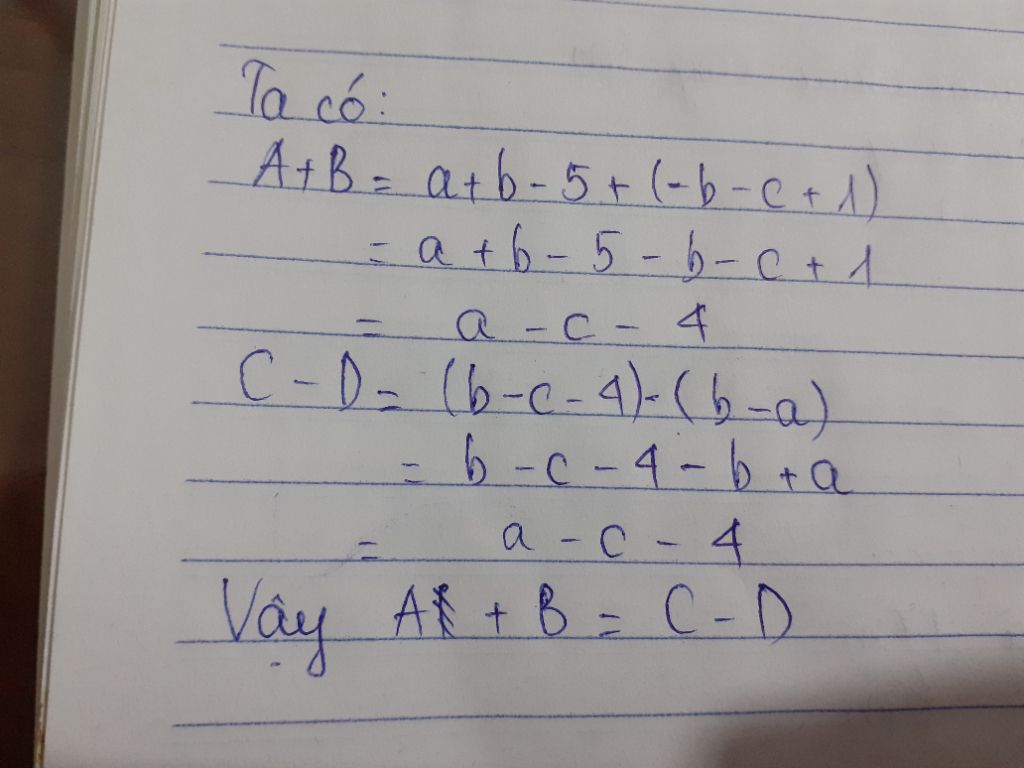 Ta có:
A+B = a+b-5+(-b-c+1)
= a+b-5-b-c+1
= a-c-4
C-D = (b-c-4)-(b-a)
= b-c-4-b+a
= a-c-4
Vậy A + B = C-D